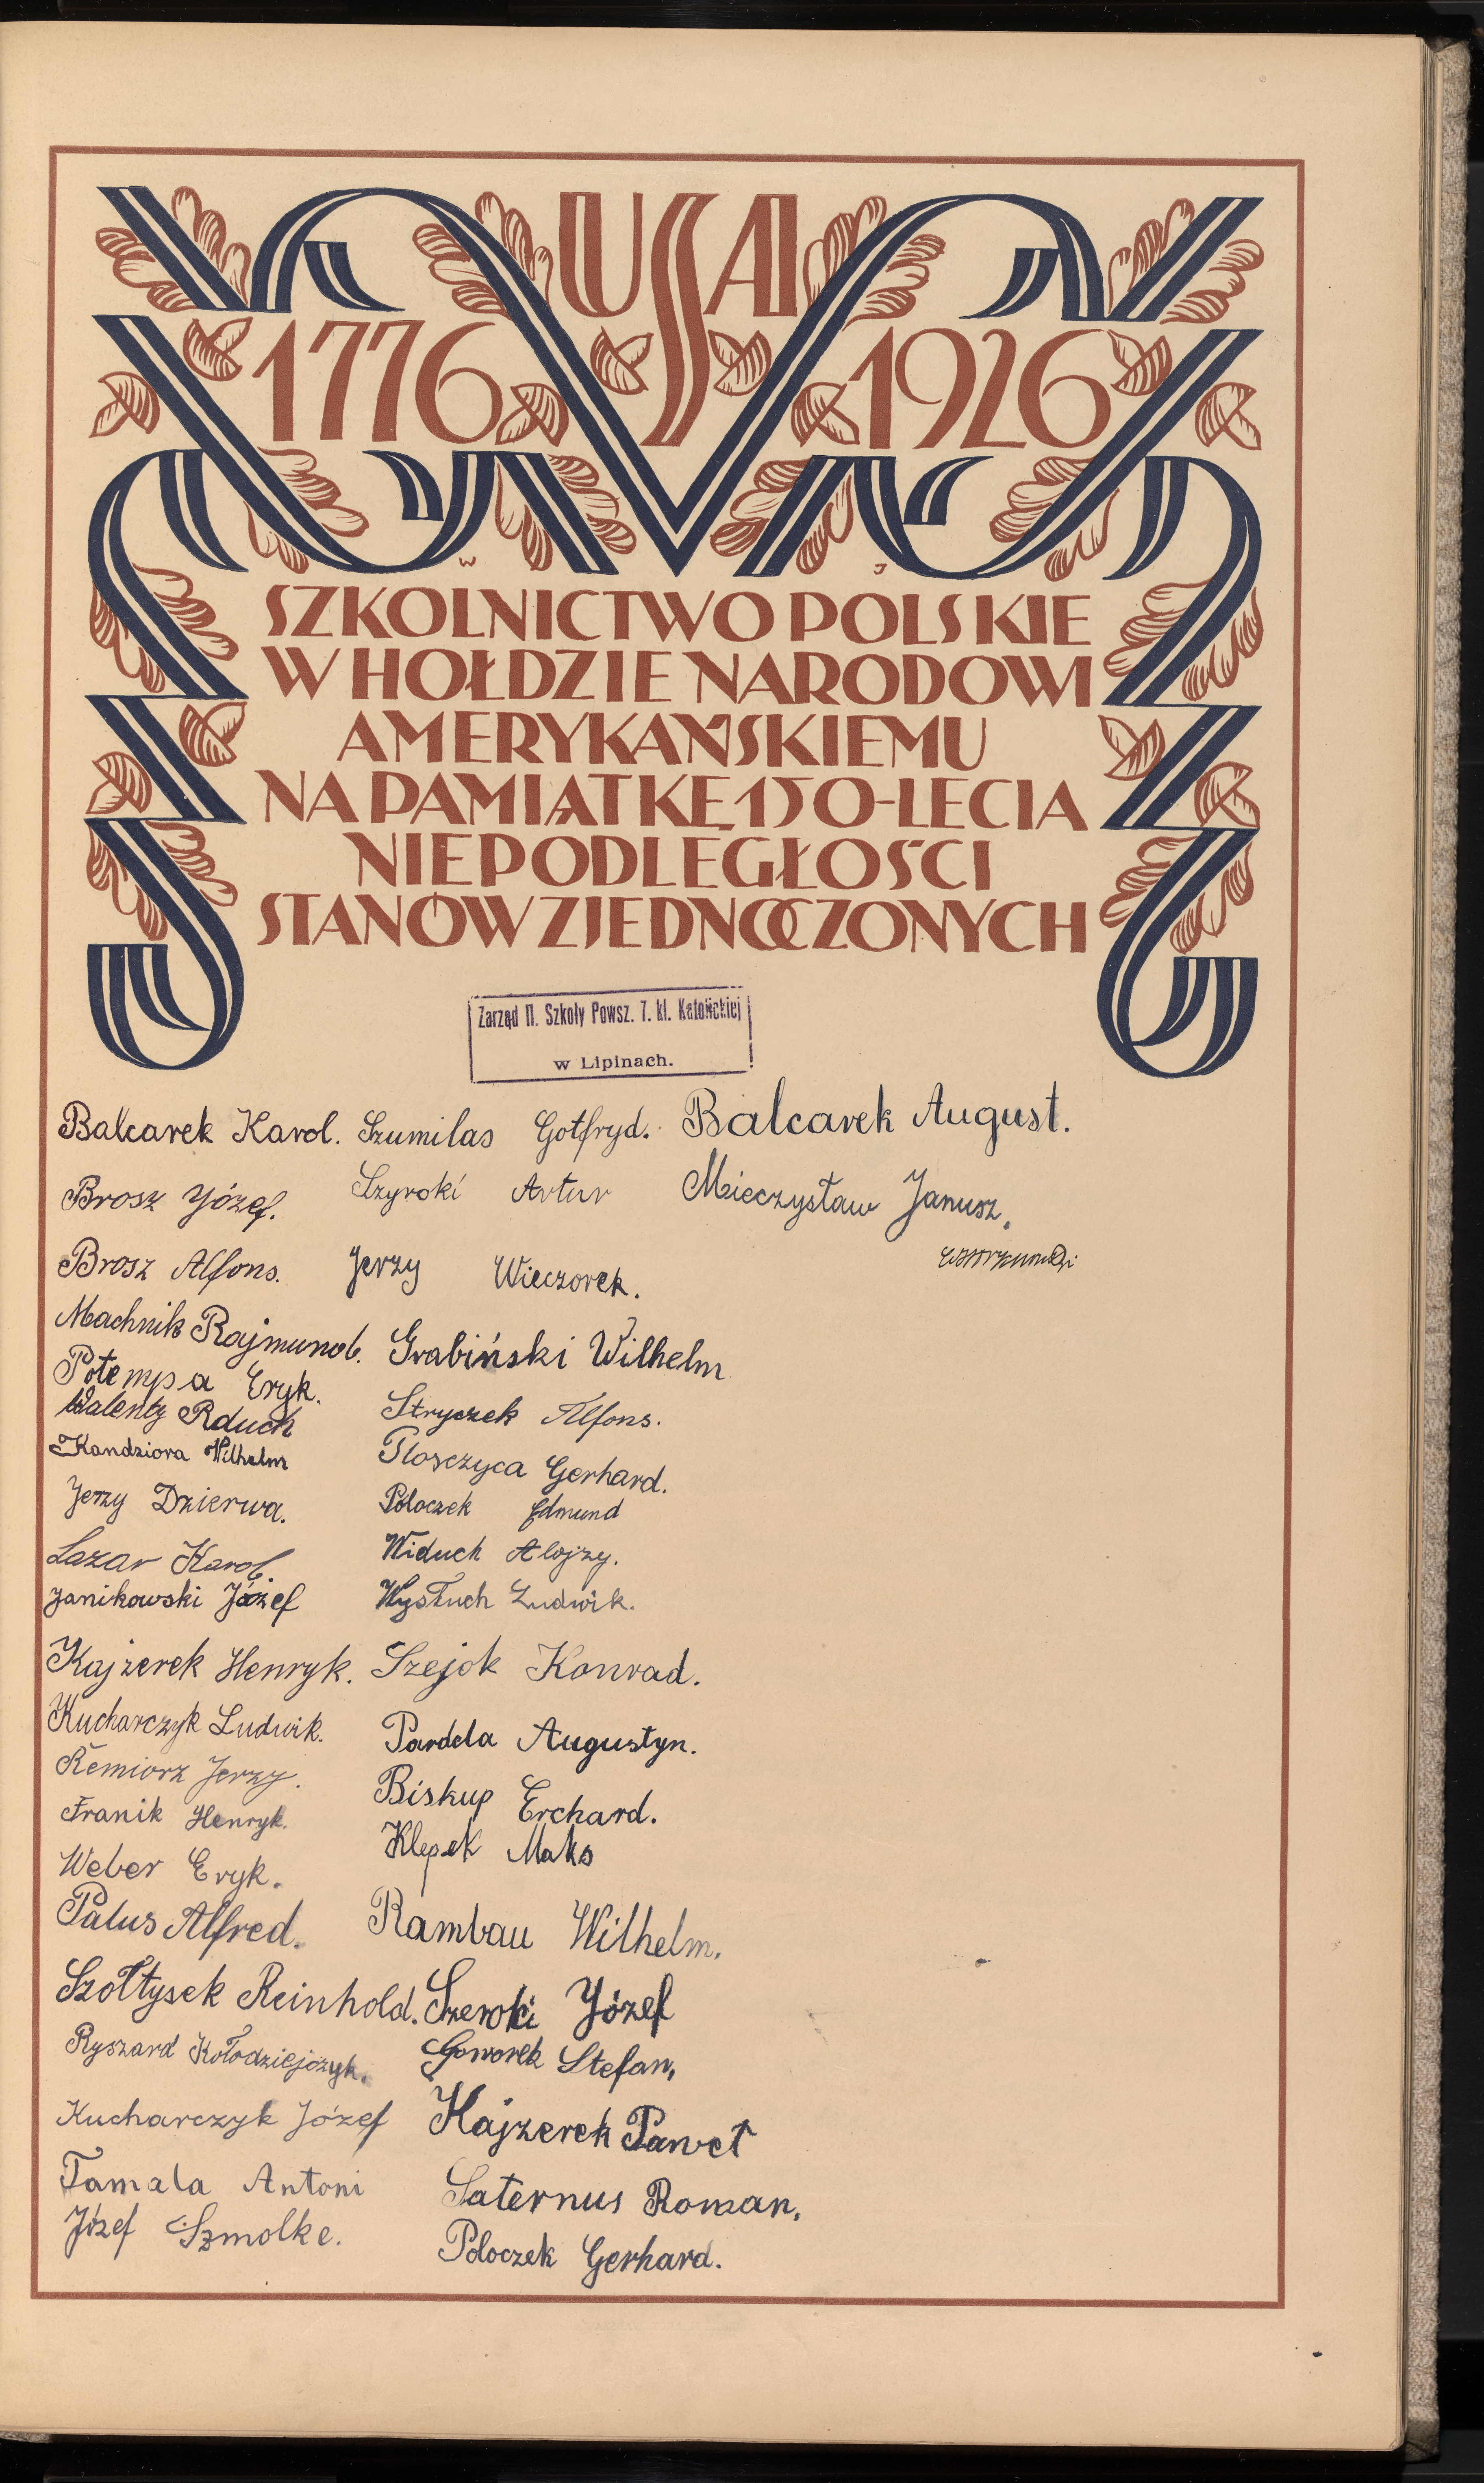 USA
1776 1926
W J
SZKOLNICTWO POLSKIE
W HOŁDZIE NARODOWI
AMERYKAŃSKIEMU
NA PAMIĄTKĘ 150-LECIA
NIEPODLEGŁOŚCI
STANÓW ZJEDNOCZONYCH
Zarząd II. Szkoły Powsz. 7. kl. Katolickiej
w Lipinach.
Balcarek Karol. Szumilas Gotfryd. Balcarek August.
Brosz Józef. Szyroki Artur Mieczysław Janusz.
Brosz Alfons. Jerzy Wieczorek.
Machnik Rajmund. Grabiński Wilhelm
Potempa Eryk. Stryczek Alfons.
Walenty Rduch Płosczyca Gerhard.
Kandziora Wilhelm Poloczek Edmund
Jerzy Dzierwa. Widuch Alojzy.
Lazar Karol. Wysłuch Ludwik.
Janikowski Józef
Kajzerek Henryk. Szejok Konrad.
Kucharczyk Ludwik. Pardela Augustyn.
Remiorz Jerzy. Biskup Erchard.
Franik Henryk. Klepek Maks
Weber Eryk.
Palus Alfred. Rambau Wilhelm.
Szołtysek Reinhold. Szeroki Józef
Ryszard Kołodziejczyk. Goworek Stefan,
Kucharczyk Józef Kajzerek Paweł
Tamala Antoni Saternus Roman,
Józef Szmolke. Poloczek Gerhard.